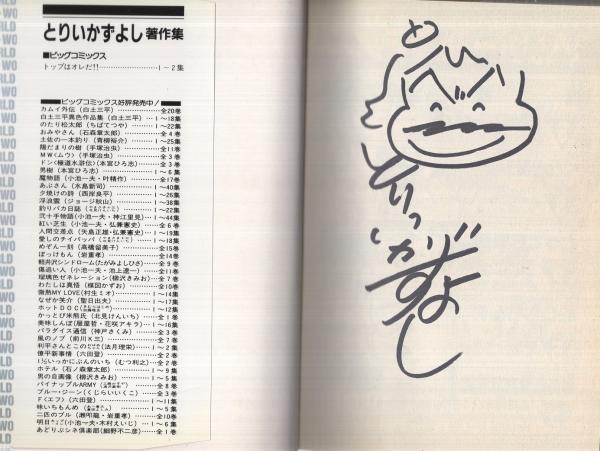 とりいかずよし著作集
■ビッグコミックス
トップはオレだ!!……………………1〜2集
■ビッグコミックス好評発売中!
カムイ外伝(白土三平)……………全20巻
白土三平異色作品集(白土三平)…1〜18集
のたり松太郎(ちばてつや)………1〜22集
おみやさん(石森章太郎)…………全4巻
土佐の一本釣り(青柳裕介)………1〜25集
陽だまりの樹(手塚治虫)…………全11巻
MW<ムウ>(手塚治虫)……………全3巻
ドン<極道水滸伝>(本宮ひろ志)…全3巻
男樹(本宮ひろ志)…………………1〜6集
魔物語(小池一夫・叶精作)………全17巻
あぶさん(水島新司)………………1〜40集
夕焼けの詩(西岸良平)……………1〜26集
浮浪雲(ジョージ秋山)……………1〜28集
釣りバカ日誌………1〜22集
弐十手物語(小池一夫・神江里見)…1〜44集
紅い芝生(小池一夫・弘兼憲史)…全6巻
人間交差点(矢島正雄・弘兼憲史)…1〜19集
愛しのチイパッパ………1〜18集
めぞん一刻(高橋留美子)…………全15巻
ぼっけもん(岩重孝)………………全14巻
軽井沢シンドローム(たがみよしひさ)…全9巻
傷追い人(小池一夫・池上遼一)…全11巻
瑠璃色ゼネレーション(柳沢きみお)…全7巻
わたしは真悟(楳図かずお)………全10巻
微熱MY LOVE(村生ミオ)………1〜14集
なぜか笑介(聖日出夫)……………1〜17集
ホットDOC………1〜12集
かっとび米熊氏(北見けんいち)…全1巻
美味しんぼ(雁屋哲・花咲アキラ)…1〜16集
パラダイス通信(神戸さくみ)……全3巻
風のノブ(前川K三)………………全7巻
利平さんとこの(法月理栄)………1〜2集
僚平新事情(六田登)………………全2巻
1½いっかにぶんのいち(むつ利之)…全2巻
ホテル(石ノ森章太郎)……………1〜9集
男の自画像(柳沢きみお)…………1〜5集
パイナップルARMY………全8巻
ブルー・ジーン(くじらいいくこ)…全3巻
F<エフ>(六田登)…………………1〜11集
味いちもんめ………1〜5集
二匹のブル(瀬叩龍・岩重孝)……全10巻
明日(小池一夫・木村えいじ)……1〜6集
あどりぶシネ倶楽部(細野不二彦)…全1巻
WORLD
とりいかずよし